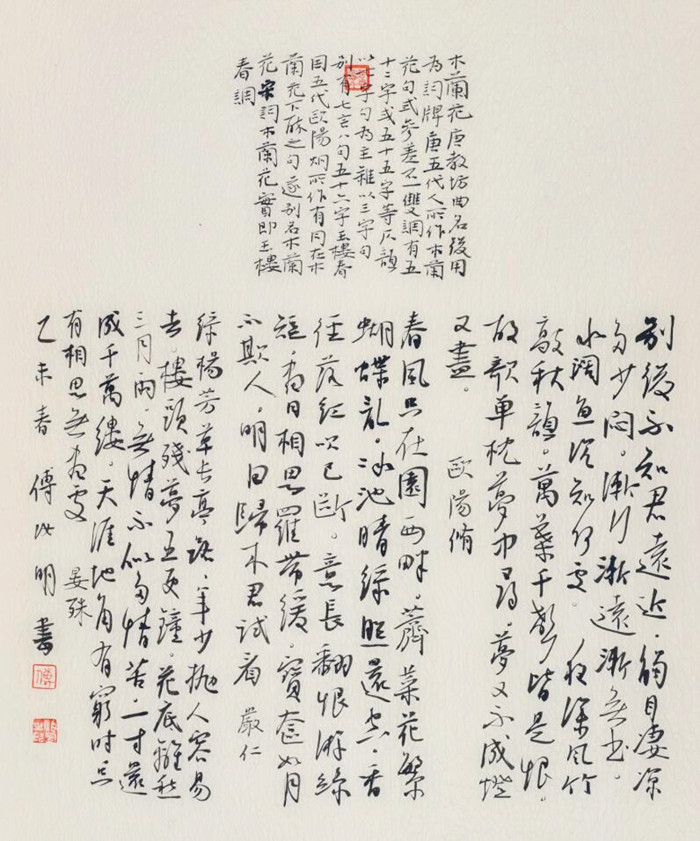 木蘭花唐教坊曲名後用
為詞牌唐五代人所作木蘭
花句式参差不一雙調有五
十二字或五十五字等仄韻
以七字句為主雜以三字句
别有七言八句五十六字玉樓春
因五代歐陽炯所作有同在木
蘭花下醉之句遂别名木蘭
花宋詞木蘭花實即玉樓
春調
别後不知君遠近，觸目凄凉
多少悶。漸行漸遠漸無書。
水闊魚沉知何處。夜深風竹
敲秋韻。萬葉千聲皆是恨。
故欹單枕夢中尋。夢又不成燈
又盡。 歐陽脩
春風只在園西畔，薺菜花繁
蝴蝶亂。冰池晴綠照還空。香
徑落紅吹已斷。意長翻恨游絲
短。盡日相思羅帶緩。寶奩如月
不欺人，明日歸來君試看 嚴仁
綠楊芳草長亭路，年少拋人容易
去。樓頭殘夢五更鐘。花底離愁
三月雨。無情不似多情苦。一寸還
成千萬縷。天涯地角有窮時只
有相思無盡處 晏殊
乙未春 傅 明書
傅